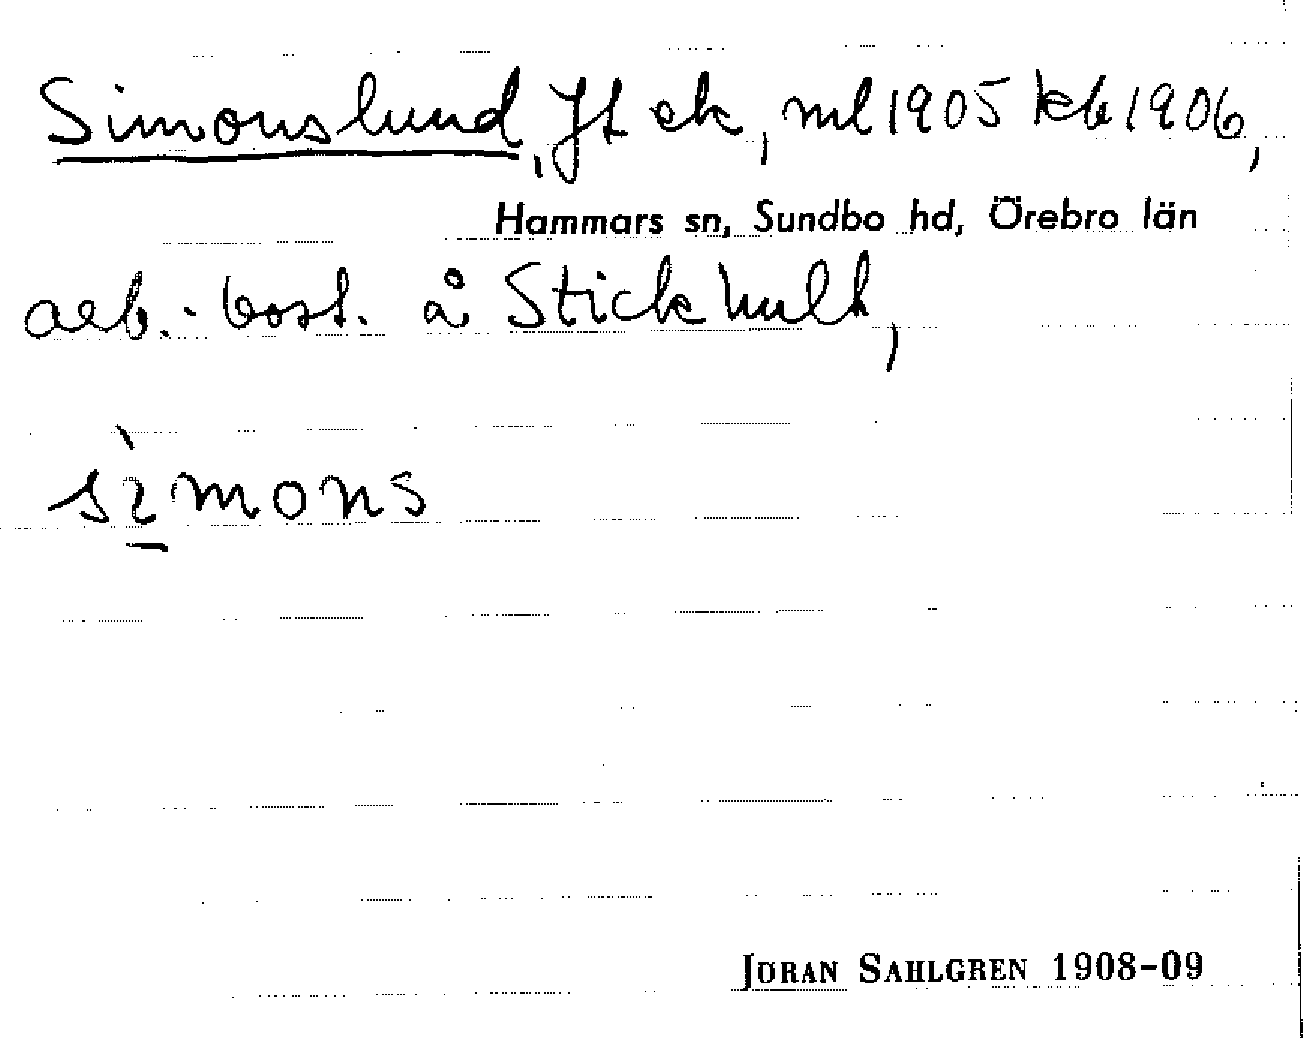 Simonslund, Jt ek, ml 1905 kb 1906,
Hammars sn, Sundbo hd, Örebro län
arb.-bost. å Stickhult,
sìmons
JÖRAN SAHLGREN 1908-09